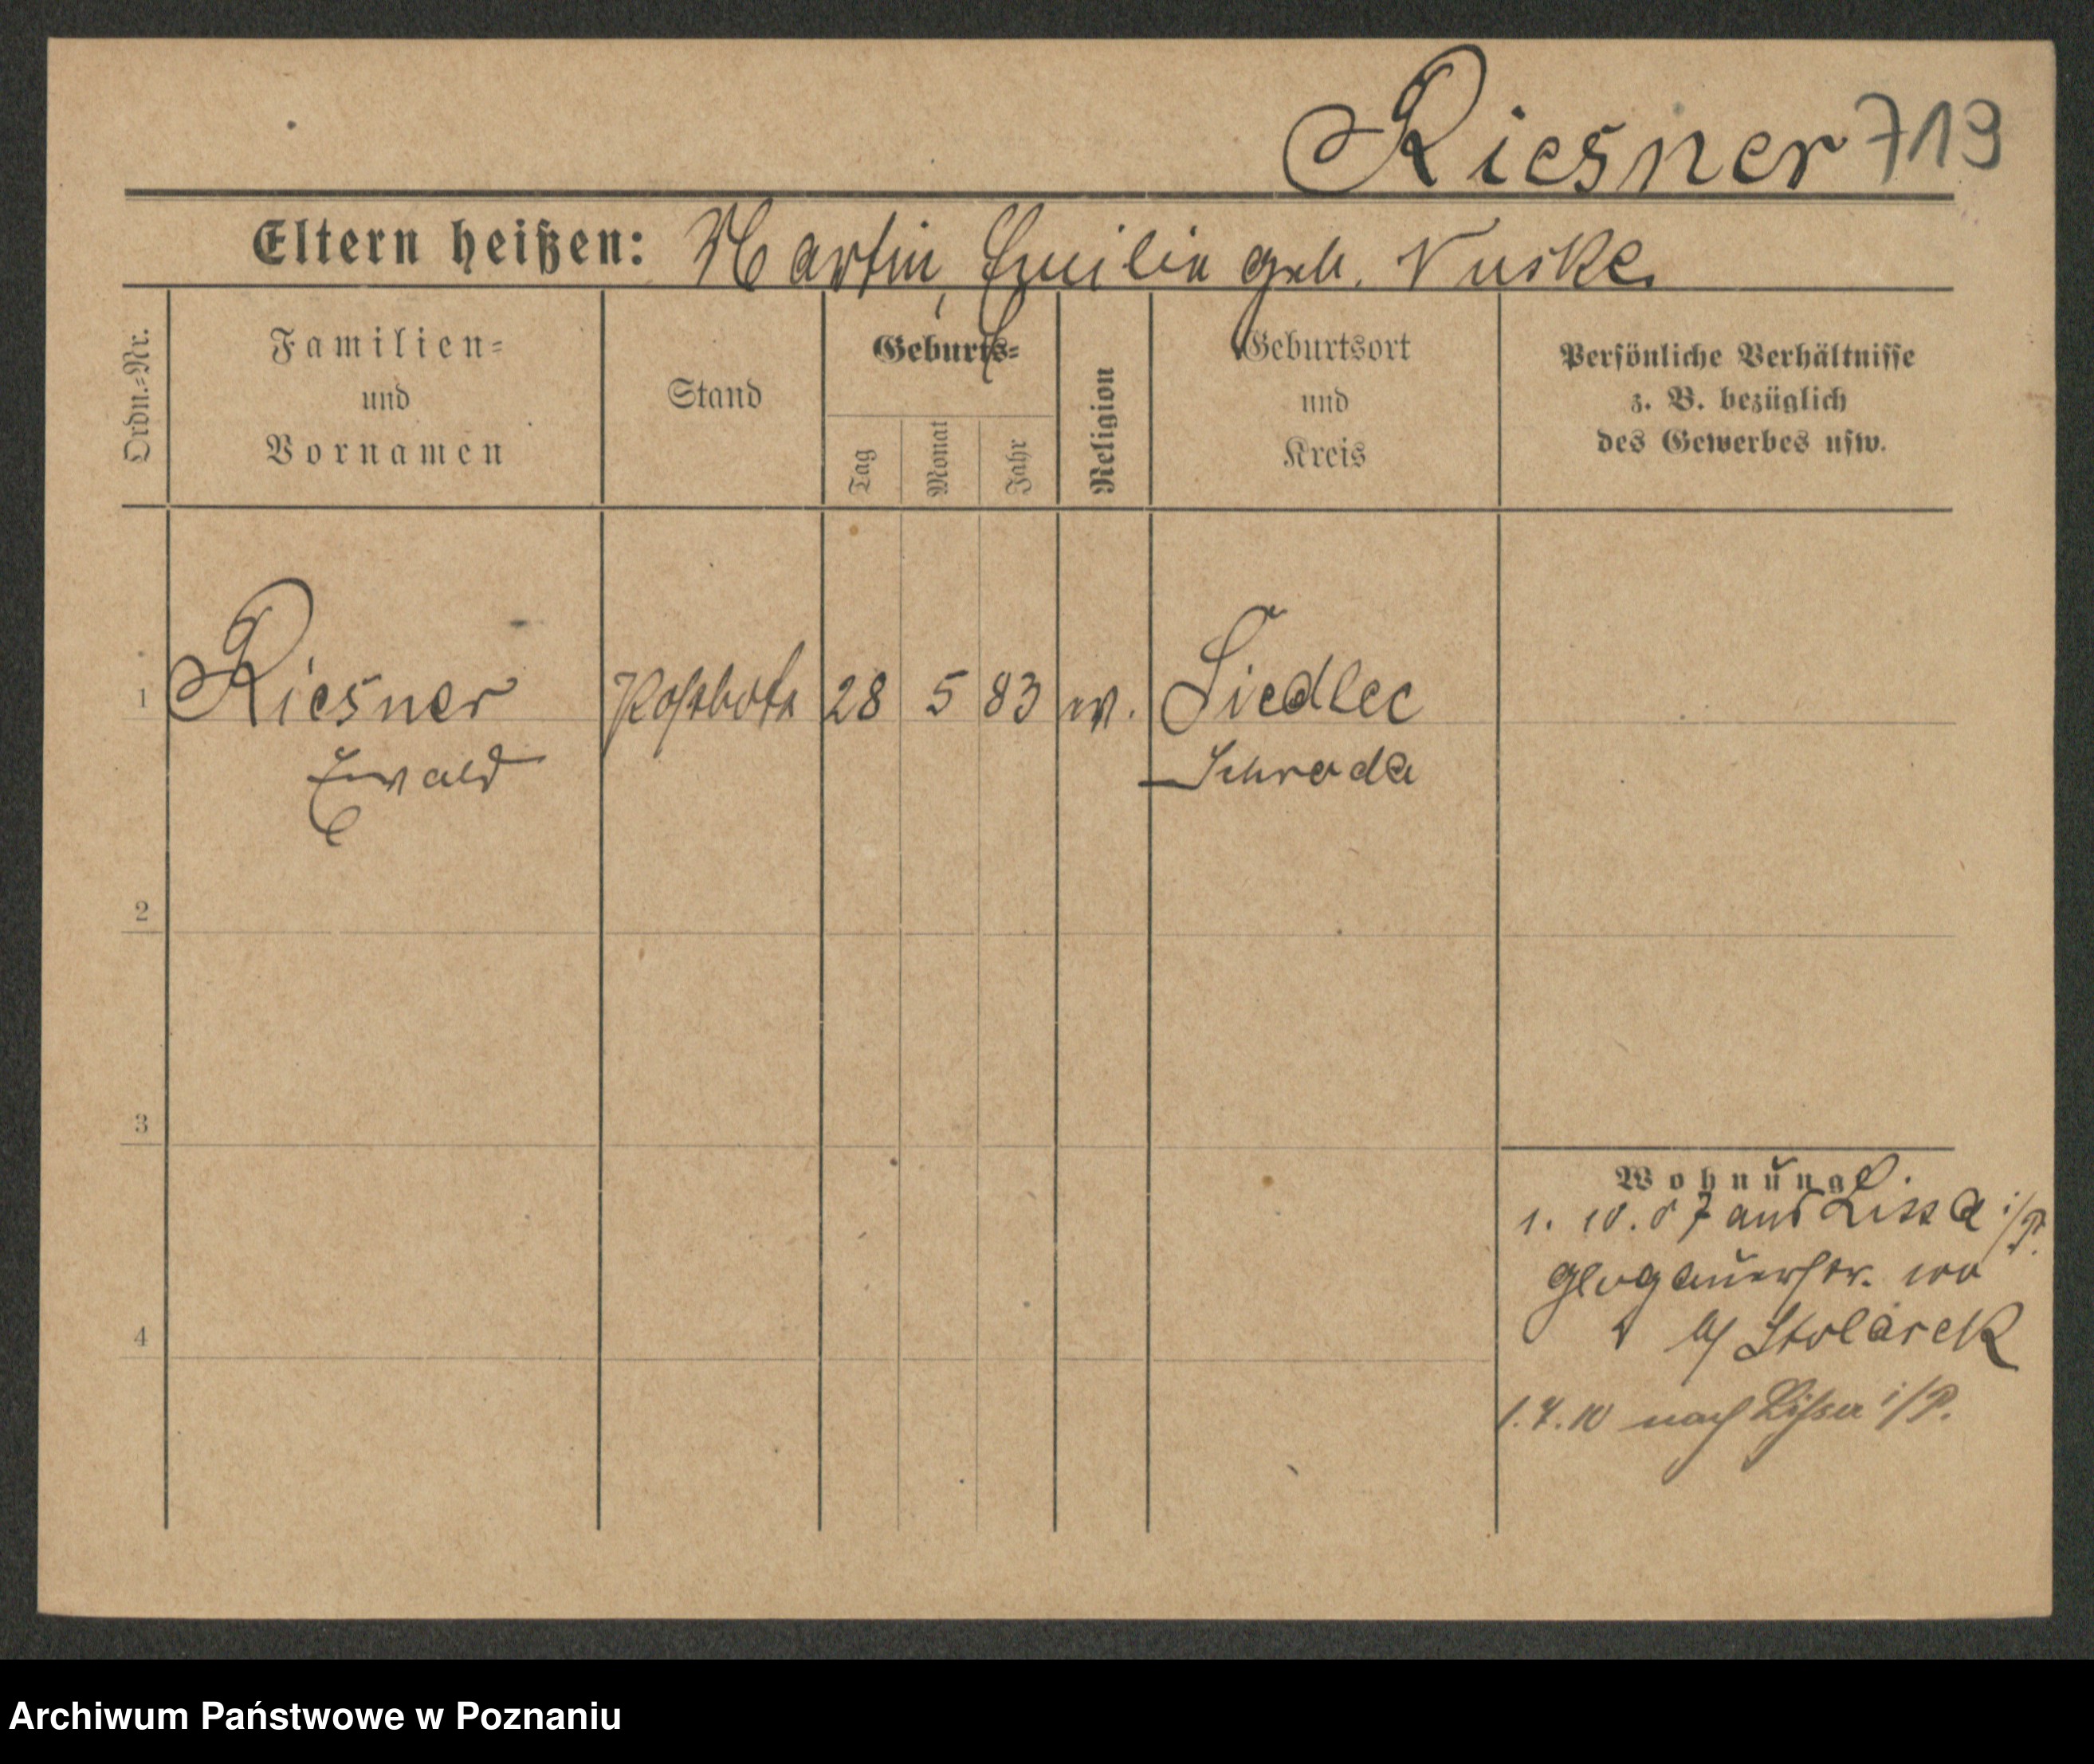 Riesner 719
Eltern heißen: Martin, Emilie geb. Nuske
Ordn.=Nr.
Familien=
und
Vornamen
Stand
Geburts=
Tag
Monat
Jahr
Religion
Geburtsort
und
Kreis
Persönliche Verhältnisse
z. B. bezüglich
des Gewerbes usw.
1 Riesner Postbote 28 5 83 ev. Siedlec
Ewald Schroda
2
3
Wohnung
1. 10. 07 aus Lissa i/P.
Glogauerstr.
b/ Stolarek
4
1.4.10 nach Lissa i/P.
Archiwum Państwowe w Poznaniu